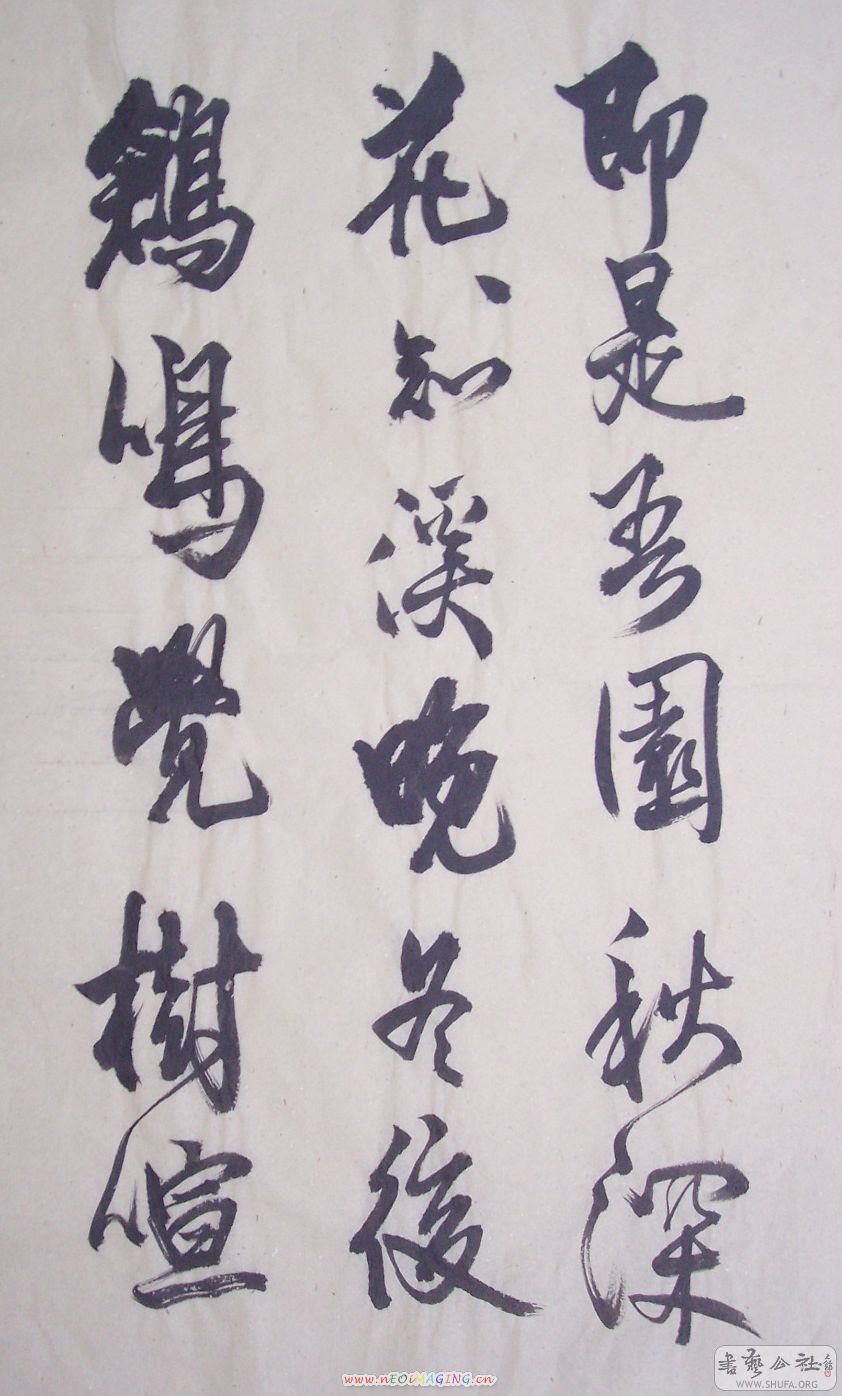 即是吾園秋深
花、知溪晚冬後
鳴覺樹喧
www.nEOiMAGING.cn
書藝公社
WWW.SHUFA.ORG